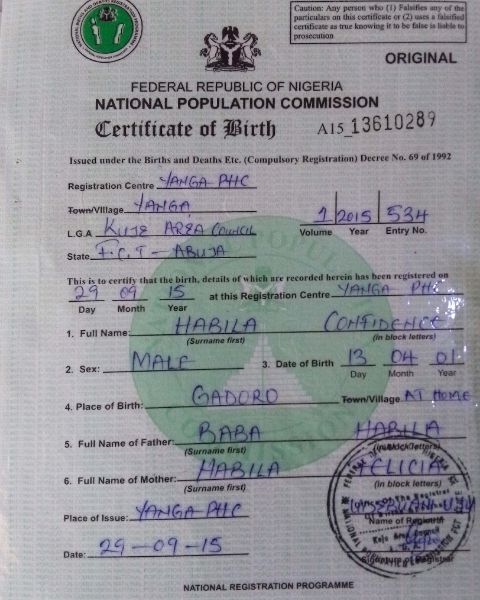 Caution: Any person who (1) Falsifies any of the
particulars on this certificate or (2) uses a falsified
certificate as true knowing it to be false is liable to
prosecution
ORIGINAL
FEDERAL REPUBLIC OF NIGERIA
NATIONAL POPULATION COMMISSION
Certificate of Birth A15 13610289
Issued under the Births and Deaths Etc. (Compulsory Registration) Decree No. 69 of 1992
Registration Centre YANGA PHC
Town/Village YANGA
L.G.A KUJE AREA COUNCIL
1 2015 534
Volume Year Entry No.
State F.C.T - ABUJA
This is to certify that the birth, details of which are recorded herein has been registered on
29 09 15 at this Registration Centre YANGA PHC
Day Month Year
1. Full Name: HABILA CONFIDENCE
(Surname first) (in block letters)
2. Sex: MALE 3. Date of Birth 13 04 01
Day Month Year
4. Place of Birth: GADORO Town/Village AT HOME
5. Full Name of Father: BABA HABILA
(Surname first) (in block letters)
6. Full Name of Mother: HABILA FELICIA
(Surname first) (in block letters)
Place of Issue: YANGA PHC
Name of Registrar
Date: 29-09-15
Signature of Registrar
NATIONAL REGISTRATION PROGRAMME